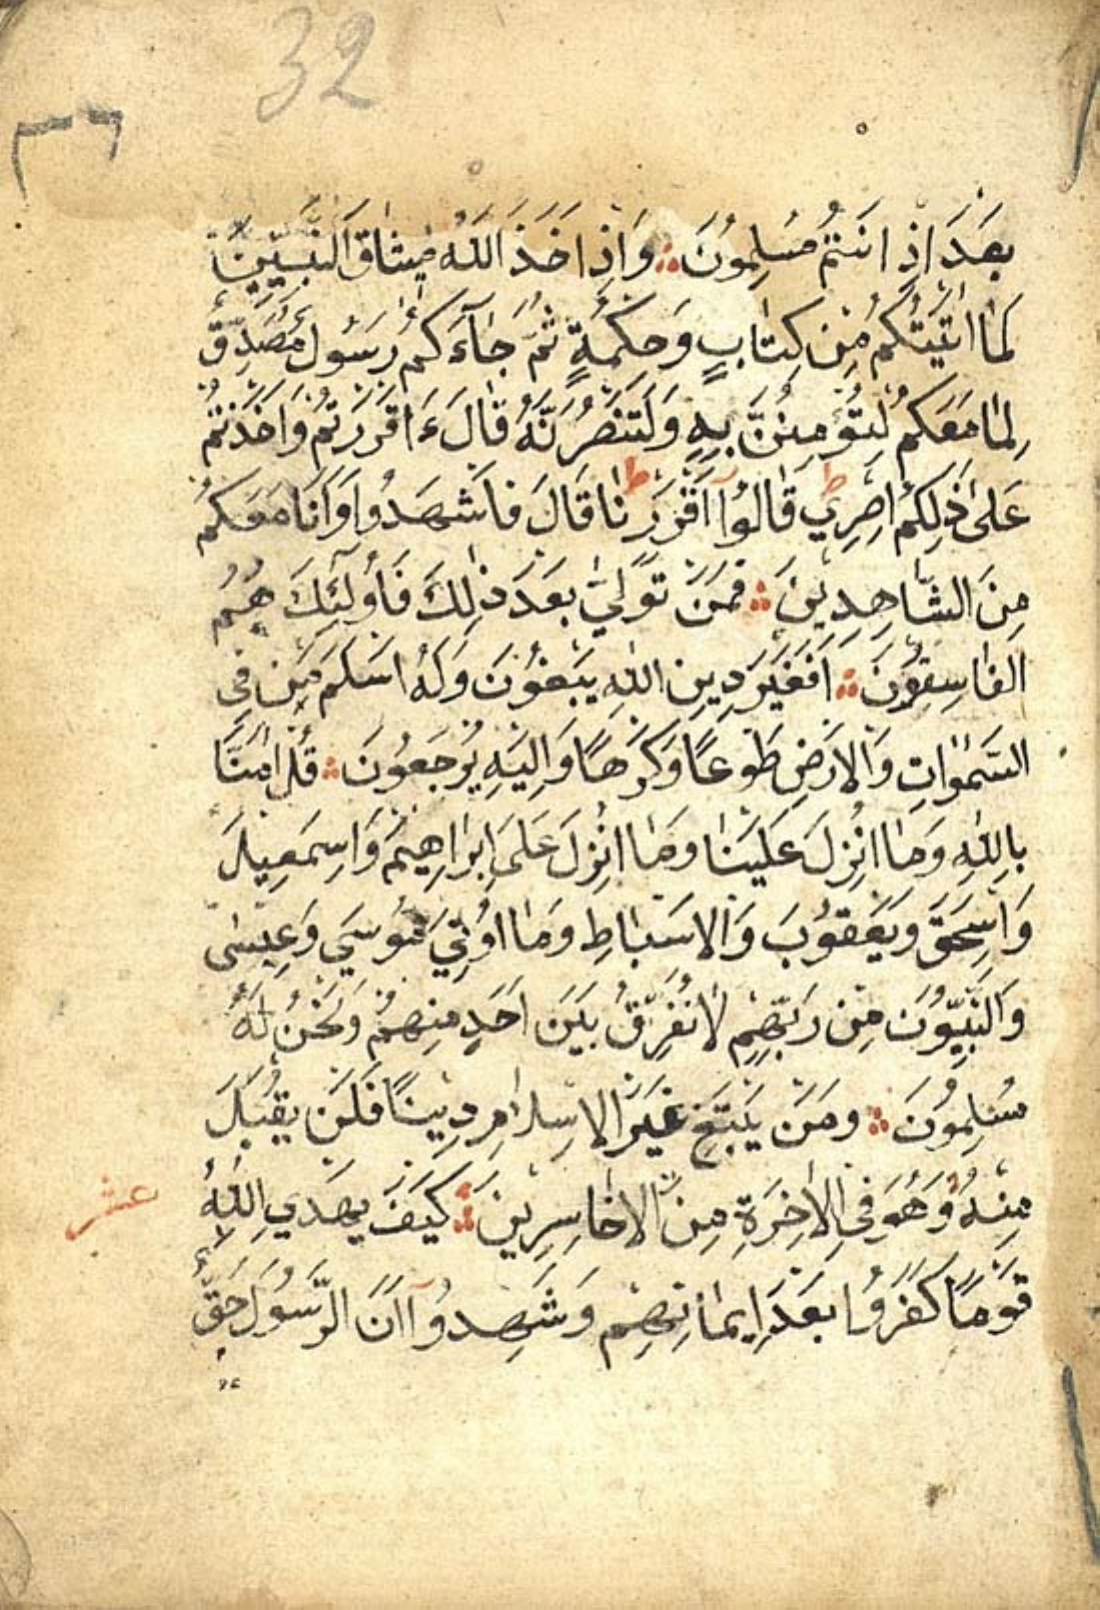 32
بَعْدَ اِذْ اَنْتُمْ مُسْلِمُونَ وَاِذْ اَخَذَ اللّٰهُ مِيثَاقَ النَّبِيّينَ
لَمَا اٰتَيْتُكُمْ مِنْ كِتَابٍ وَحِكْمَةٍ ثُمَّ جَآءَكُمْ رَسُولٌ مُصَدِّقٌ
لِمَا مَعَكُمْ لَتُؤْمِنُنَّ بِهِ وَلَتَنْصُرُنَّهُ قَالَ ءَاَقْرَرْتُمْ وَاَخَذْتُمْ
عَلٰى ذٰلِكُمْ اِصْرِي ط قَالُوآ اَقْرَرْنَا ط قَالَ فَاشْهَدُوا وَاَنَا مَعَكُمْ
مِنَ الشَّاهِدِينَ فَمَنْ تَوَلّٰي بَعْدَ ذٰلِكَ فَاُولٰٓئِكَ هُمُ
الْفَاسِقُونَ اَفَغَيْرَ دِينِ اللّٰهِ يَبْغُونَ وَلَهُ اَسْلَمَ مَنْ فِي
السَّمٰوَاتِ وَالْاَرْضِ طَوْعًا وَكَرْهًا وَاِلَيْهِ يُرْجَعُونَ قُلْ اٰمَنَّا
بِاللّٰهِ وَمَا اُنْزِلَ عَلَيْنَا وَمَا اُنْزِلَ عَلٰى اِبْرَاهِيمَ وَاِسْمٰعِيلَ
وَاِسْحٰقَ وَيَعْقُوبَ وَالْاَسْبَاطِ وَمَا اُوتِيَ مُوسٰي وَعِيسٰى
وَالنَّبِيُّونَ مِنْ رَبِّهِمْ لَا نُفَرِّقُ بَيْنَ اَحَدٍ مِنْهُمْ وَنَحْنُ لَهُ
مُسْلِمُونَ وَمَنْ يَبْتَغِ غَيْرَ الْاِسْلَامِ دِينًا فَلَنْ يُقْبَلَ
مِنْهُ وَهُوَ فِي الْاٰخِرَةِ مِنَ الاخَاسِرِينَ كَيْفَ يَهْدِي اللّٰهُ
عشر
قَوْمًا كَفَرُوا بَعْدَ اِيمَانِهِمْ وَشَهِدُوآ اَنَّ الرَّسُولَ حَقٌّ